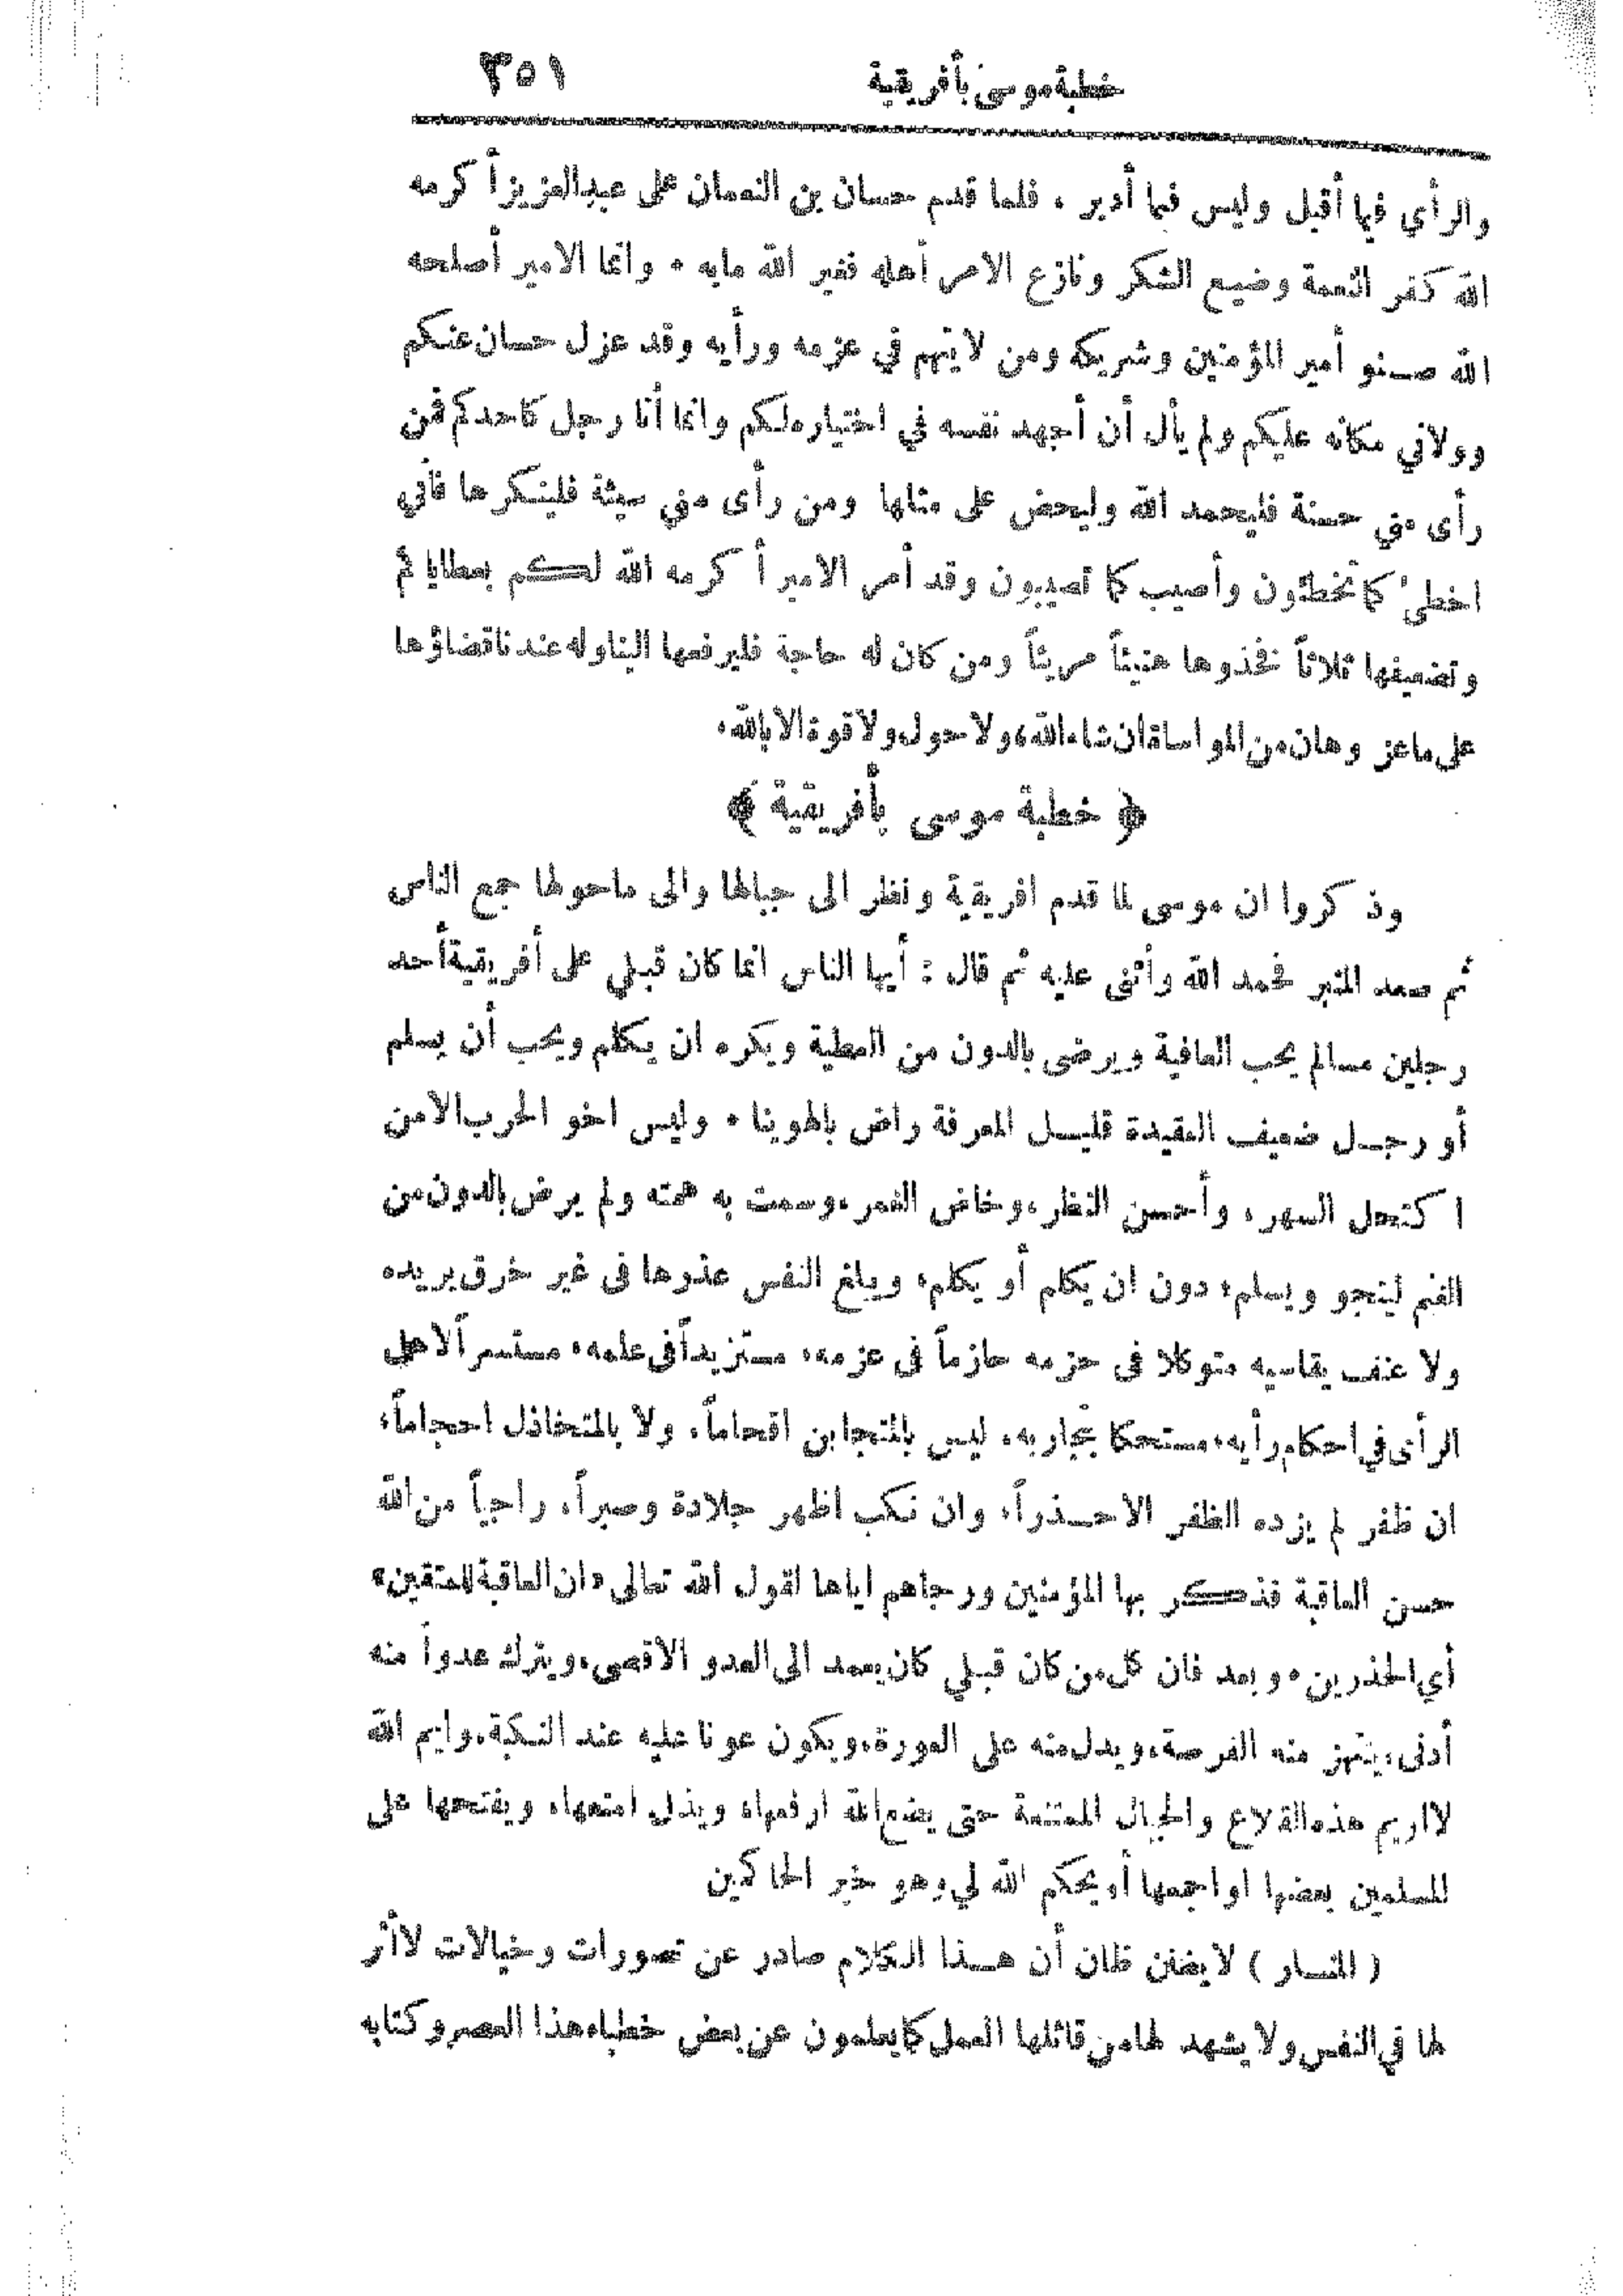 خطبة موسى بأفريقية ٣٥١
والرأي فيما أقبل وليس فيما أدبر ، فلما قدم حسان بن النعمان على عبدالعزيز أكرمه
الله كفر النعمة وضيع الشكر ونازع الامر أهله فغير الله مابه ٠ وانما الامير أصلحه
الله صنو أمير المؤمنين وشريكه ومن لا يتهم في عزمه ورأيه وقد عزل حسان عنكم
وولاني مكانه عليكم ولم يأل أن أجهد نفسه في اختياره لكم وانما أنا رجل كاحدكم فمن
رأى مني حسنة فليحمد الله وليحض على مثلها ومن رأى مني سيئة فلينكرها فأني
اخطئ كما تخطئون وأصيب كما تصيبون وقد أمر الامير أكرمه الله لكم بعطاياكم
وتضعيفها ثلاثاً فخذوها هنيئاً مريئاً ومن كان له حاجة فليرفعها الينا وله عندنا قضاؤها
على ماعز وهان من المواساة ان شاء الله، ولا حول ولا قوة الا بالله.
﴿ خطبة موسى بأفريقية ﴾
وذكروا ان موسى لما قدم افريقية ونظر الى جبالها والى ماحولها جمع الناس
ثم صعد المنبر فحمد الله وأثنى عليه ثم قال : أيها الناس انما كان قبلي على أفريقية أحد
رجلين مسالم يحب العافية ويرضى بالدون من العطية ويكره ان يكلم ويحب أن يسلم
أو رجل ضعيف العقيدة قليل المعرفة راض بالهوينا ٠ وليس اخو الحرب الا من
اكتحل السهر، وأحسن النظر، وخاض الغمر، وسمت به همته ولم يرض بالدون من
الغنم لينجو ويسلم، دون ان يكلم أو يكلم، ويبلغ النفس عذرها فى غير خرق يريده
ولا عنف يقاسيه متوكلا فى حزمه حازماً فى عزمه، مستزيداً فى علمه، مستسراً لاهل
الرأى في احكام رأيه، مستحكا بتجاربه، ليس بالمتجابن اقحاماً، ولا بالمتخاذل احجاماً،
ان ظفر لم يزده الظفر الا حذراً، وان نكب اظهر جلادة وصبراً، راجياً من الله
حسن العاقبة فذكر بها المؤمنين ورجاهم اياها لقول الله تعالى «ان العاقبة للمتقين»
أي الحذرين ٠ وبعد فان كل من كان قبلي كان يعمد الى العدو الاقصى، ويترك عدواً منه
أدنى، ينتهز منه الفرصة، ويدل منه على العورة، ويكون عونا عليه عند النكبة، وايم الله
لا اريم هذه القلاع والجبال الممتنعة حتى يضع الله ارفعها، ويذل امنعها، ويفتحها على
المسلمين بعضها او اجمعها أو يحكم الله لي وهو خير الحاكمين
( المنار ) لا يظنن ظان أن هذا الكلام صادر عن تصورات وخيالات لا أثر
لها في النفس ولا يشهد لها من قائلها العمل كما يعلمون عن بعض خطباء هذا العصر وكتابه